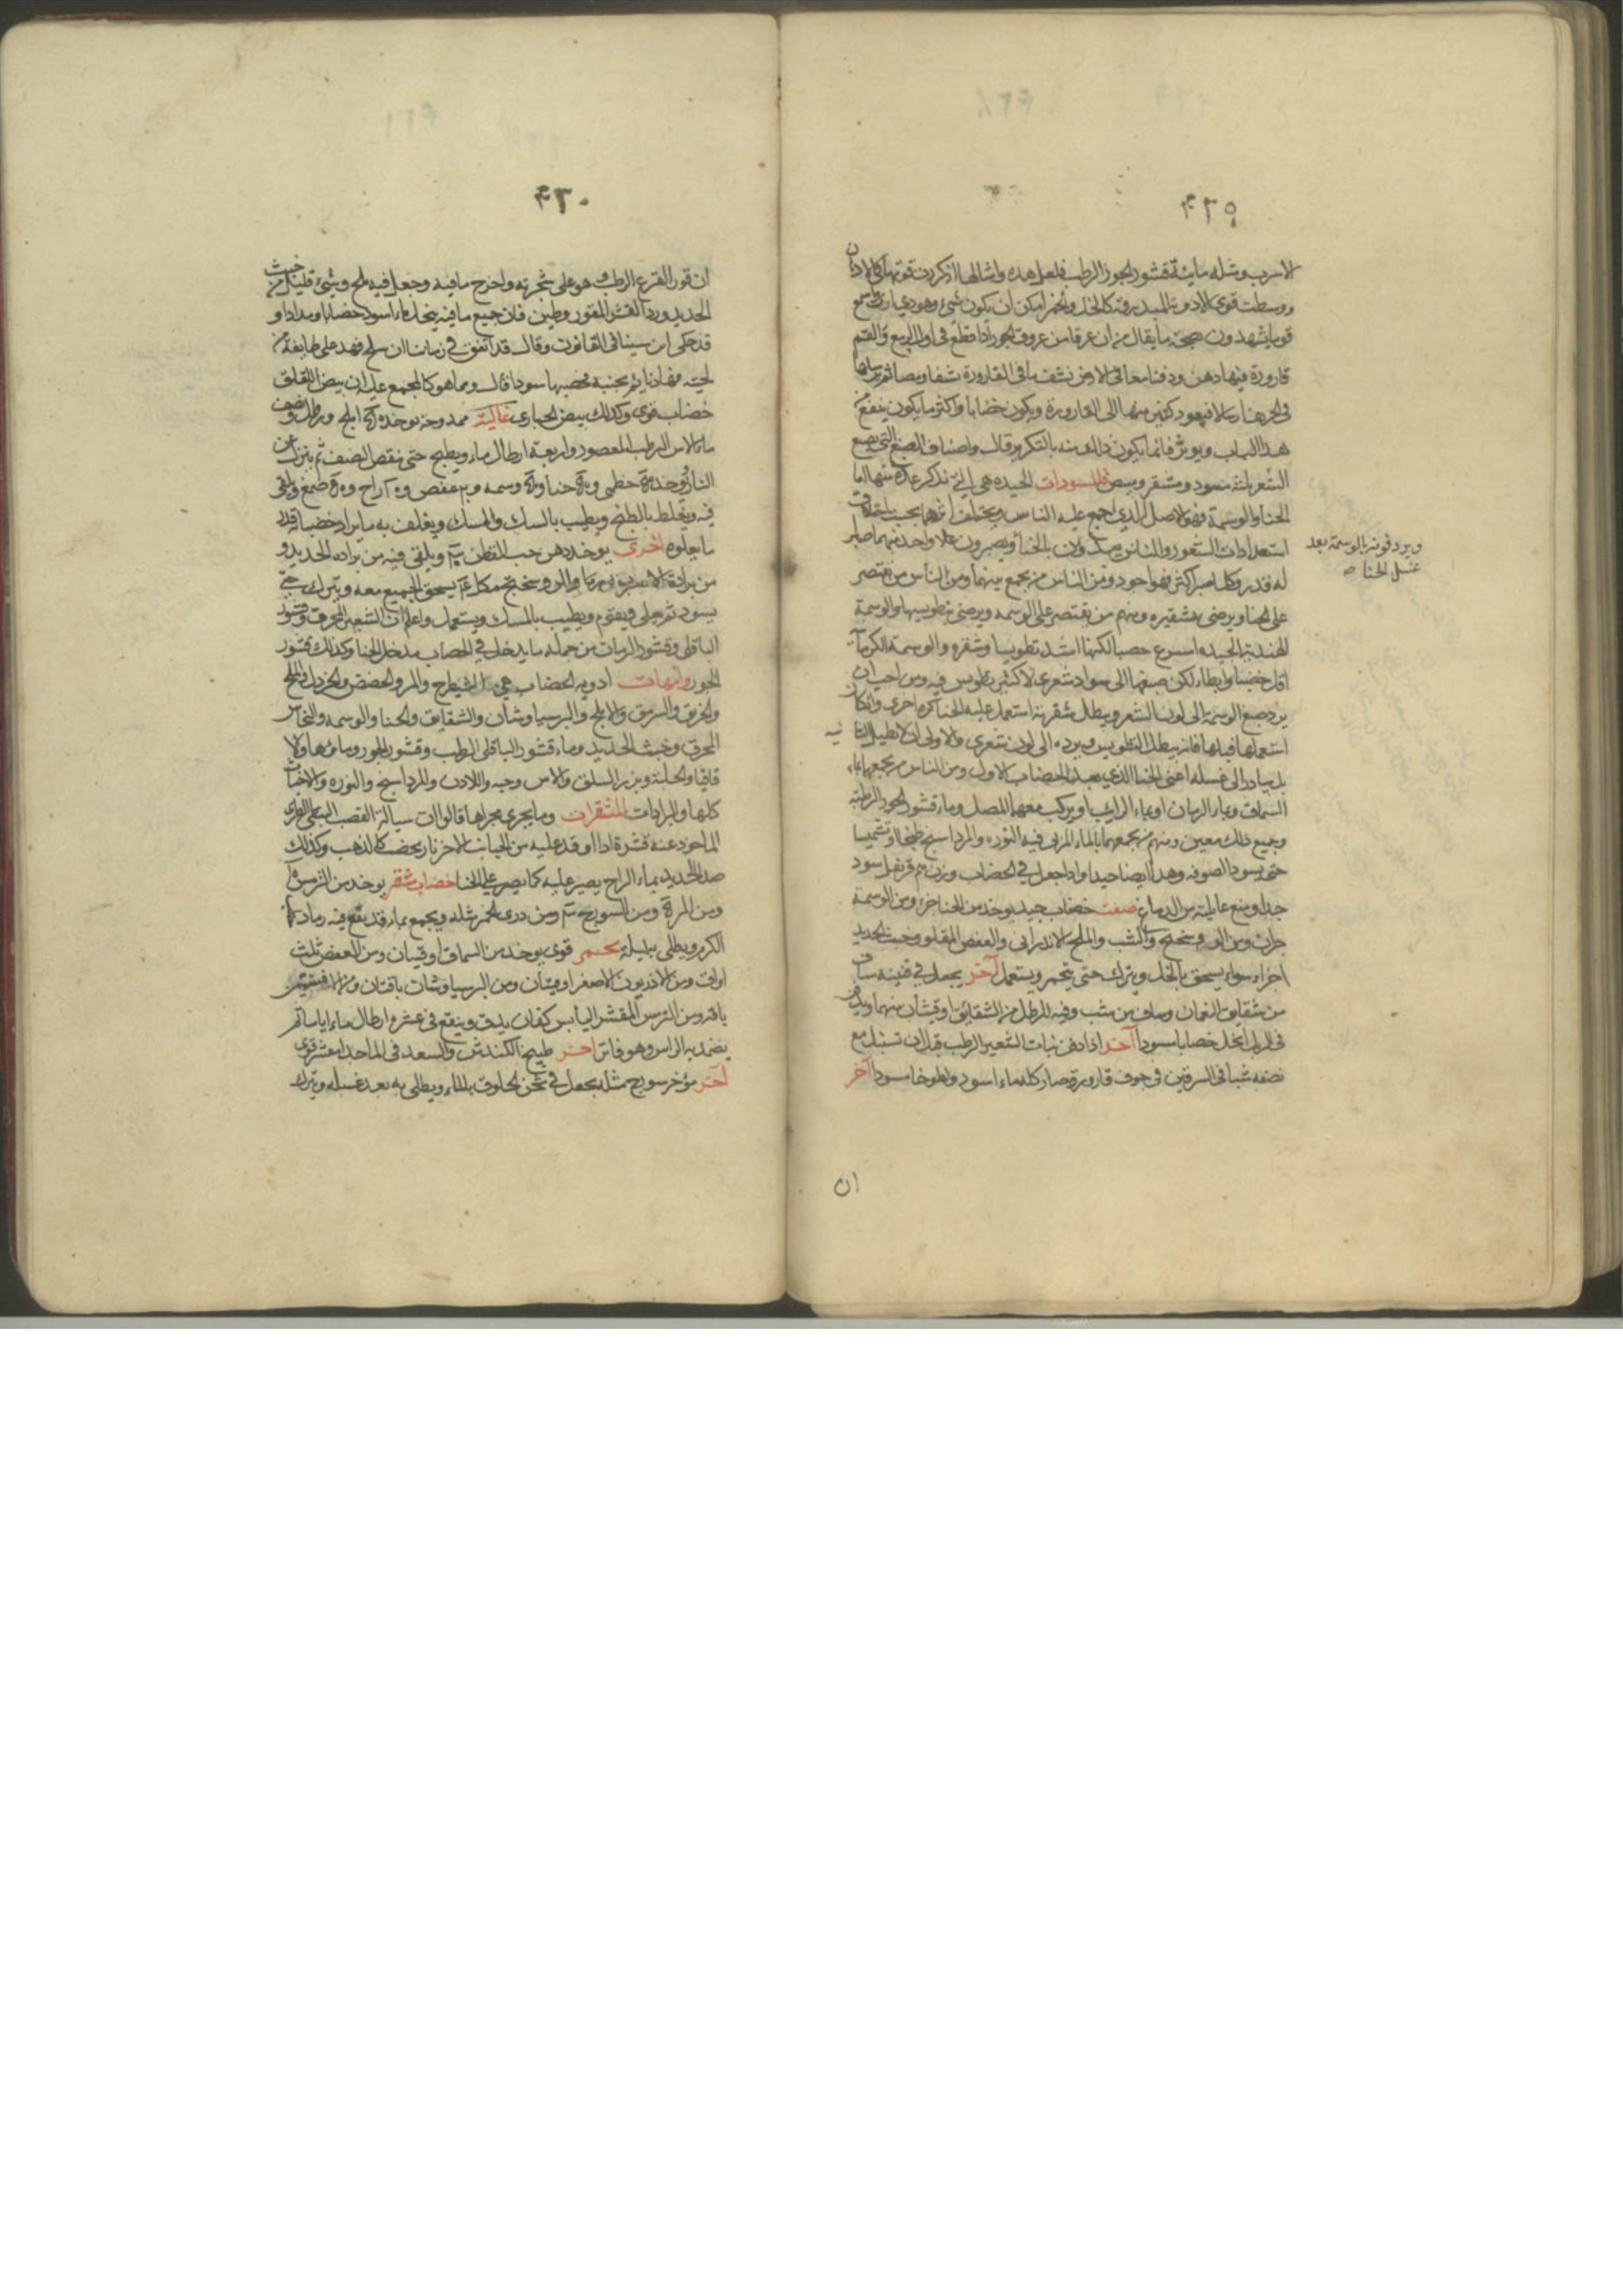 ٤٢٩
الاسرب ومثله مائية قشور الجوز الرطب فلعل هذه وامثالها اذا كررت قوتها كالادهان
ووسطت قوى الادوية المبدرقة كالخل والخمر امكن ان يكون شيء وهو ذي اني اسمع
قوما يشهدون صحة ما يقال من ان عرقا من عروق الجوز اذا قطع في اول الربيع والقم
قارورة فيها دهن ودفنا معا في الارض نشف ما في القارورة نشفا ومصا ثم يرسلها
في الخريف ارسالا فيعود كثير منها الى القارورة ويكون خضابا واكثر ما يكون ينفع من
هذا الباب ويوثر فانما يكون ذلك منه بالتكرير قال واصناف الصبغ التي يصبغ
الشعر ثلثة مسود ومشقر ومبيض فالمسودات الجيده هي التي نذكر عدة منها اما
الحنا والوسمة فهو الاصل الذي اجمع عليه الناس ويختلف اثرهما بحسب اختلاف
استعدادات الشعور والناس يبتدؤن بالحنا ويصبرون على كل واحد منهما صبرا
له قدر وكلما صبر اكثر فهو اجود ومن الناس من يجمع بينهما ومن الناس من يقتصر
على الحنا ويرضى بتشقيره ومنهم من يقتصر على الوسمه ويرضى بتطويسها والوسمة
الهندية الجيده اسرع خضبا لكنها اشد تطويسا وشقره والوسمة الكرمانية
اقل خضبا وابطاء لكن صبغها الى سواد شعرى لا كثير تطويس فيه ومن احب ان
يرد صبغ الوسمة الى لون الشعر ويبطل شقرته استعمل عليه الحنا كره اخرى وان كان
استعملها قبلها فانه يبطل التطويس ويرده الى لون شعرى والاولى ان لا تطيل الثانية
بل يبادر الى غسله اعنى الحنا الذي بعد الخضاب الاول ومن الناس من يجمعها بماء
السماق وبماء الرمان او بماء الرايب او يركب معهما المصل وماء قشور الجوز الرطبة
وجميع ذلك معين ومنهم من يجمعهما بالماء المربى فيه النوره والمرداسنج طبخا او تشميسا
حتى يسود الصوفه وهذا ايضا جيد واذا جعل في الخضاب وزن درهم قرنفل سود
جدا ومنع عايلته من الدماغ صفت خضاب جيد يوخذ من الحنا جزء ومن الوسمة
جزان ومن الروسختج والشب والملح الاندرانى والعفص المقلو وخبث الحديد
اجزاء سواء يسحق بالخل ويترك حتى يتخمر ويستعمل آخر يجعل في قنينه ساف
من شقايق النعمان وساف من شب وفيه للرطل من الشقائق اوقيتان منهما ويدفن
في الزبل انحل خضابا مسودا آخر اذا دفن نبات الشعير الرطب قبل ان تسنبل مع
نصفه شبا في السرقين في جوف قارورة صار كله ماء اسود ولطوخا مسودا آخر
ويردفونه بالوسمة بعد
غسل الحنا صح
ان
٤٣٠
ان قور القرع الرطب وهو على شجرته واخرج ما فيه وجعل فيه ملح وشيء قليل من خبث
الحديد ورد القشر المقور وطين فان جميع ما فيه ينحل ماء اسود خضابا ومدادا و
قد حكى ابن سينا في القانون وقال قد اتفق في زمان ان سلح فهد على طايفة من
لحية فهاد نايم بجنبه فخضبها سودا قال ومما هو كالمجمع عليه ان بيض اللقلق
خضاب قوى وكذلك بيض الحبارى غالية ممدوحة يوخذ املج ورطل ونصف
ماء الاس الرطب المعصور واربعة ارطال ماء ويطبخ حتى ينقص النصف ثم ينزل عن
النار ويوخذ خطمى وحنا ووسمه وعفص و ه آ زاج و صمغ ويلقى
فيه ويغلظ بالطبخ ويطيب بالسك والمسك ويغلف به ما يراد خضبا قدر
ما يعلوه اخرى يوخذ دهن حب القطن ويلقى فيه من براده الحديد و
من برادة الاسرب والروسختج يسحق الجميع معه ويترك حتى
يسود ثم يغلى ويقوم ويطيب بالمسك ويستعمل واعلم ان الشعير المحرق وقشور
الباقلى وقشور الرمان من جمله ما يدخل في الخضاب مدخل الحنا وكذلك قشور
الجوز وامهات ادويه الخضاب هي الشيطرج والمر والحضض والخردل والملح
والخربق والسرمق والاملج والبرسياوشان والشقايق والحنا والوسمه والنحاس
المحرق وخبث الحديد وماء قشور الباقلى الرطب وقشور الجوز وماؤها والا
قاقيا والحلبة وبزر السلق والاس وحبه واللادن والمرداسنج والنوره والاخباث
كلها والبرادات المشقرات وما يجرى مجراها قالوا ان سيالة القصب النبطى الطرى
الماخوذ عنه قشرة اذا اوقد عليه من الجانب الاخر نار يخضب كالذهب وكذلك
صدا الحديد بماء الزاج يصبر عليه كما يصبر على الحنا خضاب مشقر يوخذ من الترمس
ومن المرة ومن السورنج ومن دردى الخمر مثله ويجمع بماء قد نقع فيه رماد
الكرم ويطلى به ليلة محمر قوى يوخذ من السماق اوقيتان ومن العفص ثلث
اواق ومن الاذريون الاصفر اوقيتان ومن البرسياوشان باقتان ومن الافسنتين
باقه ومن الترمس المقشر اليابس كفان يدق وينقع في عشره ارطال ماء اياما ثم
يضمد به الراس وهو فاتر اخر طبيخ الكندش والسعد في الماء جدا مشقر قوى
آخر مؤخر سورج مثله يجعل في ثخن الخلوق بالماء ويطلى به بعد غسله ويترك